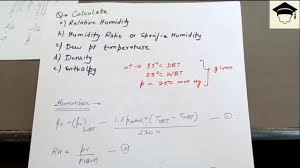 Q:- Calculate
a) Relative Humidity
b) Humidity Ratio or Specific Humidity
c) Dew pt temperature
d) Density
e) enthalpy
at → 35°C DBT
23°C WBT
P = 750 mm Hg
given.
(Pv)WBT − 1.8 Patm × (TDBT − TWBT) / 2700 — ①
RH = Pv / — ②